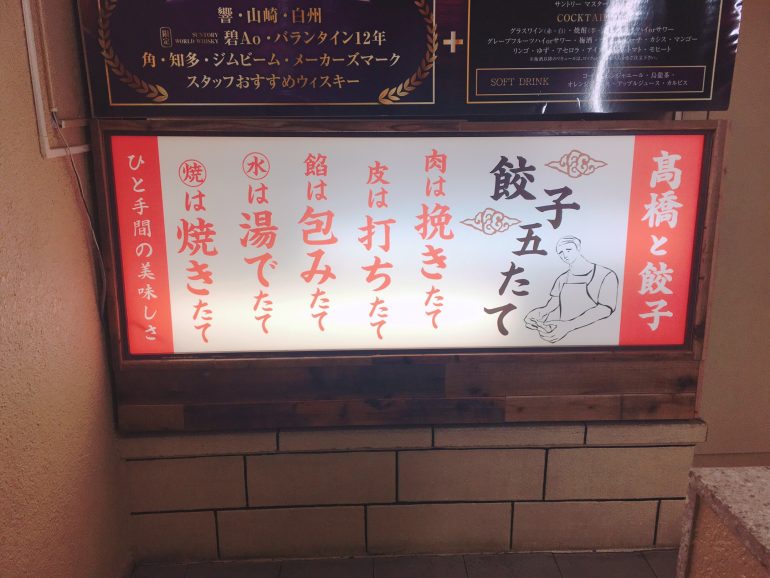 響・山崎・白州
限定
SUNTORY
WORLD WHISKY
碧Ao・バランタイン12年
角・知多・ジムビーム・メーカーズマーク
スタッフおすすめウィスキー
+
サントリー マスター
COCKTAIL
グラスワイン(赤・白)・焼酎
グレープフルーツハイorサワー・梅酒
・カシス・マンゴー
リンゴ・ゆず・アセロラ・アイ
トマト・モヒート
SOFT DRINK
コー
ジンジャエール・烏龍茶・
オレンジ
アップルジュース・カルピス
髙橋と餃子
餃子五たて
肉は挽きたて
皮は打ちたて
餡は包みたて
水は湯でたて
焼は焼きたて
ひと手間の美味しさ